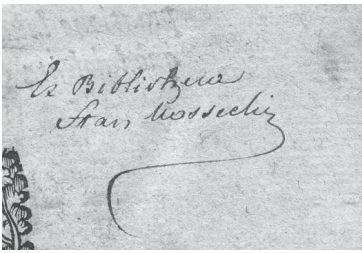 Ex Bibliotheca
Fran Mossechi